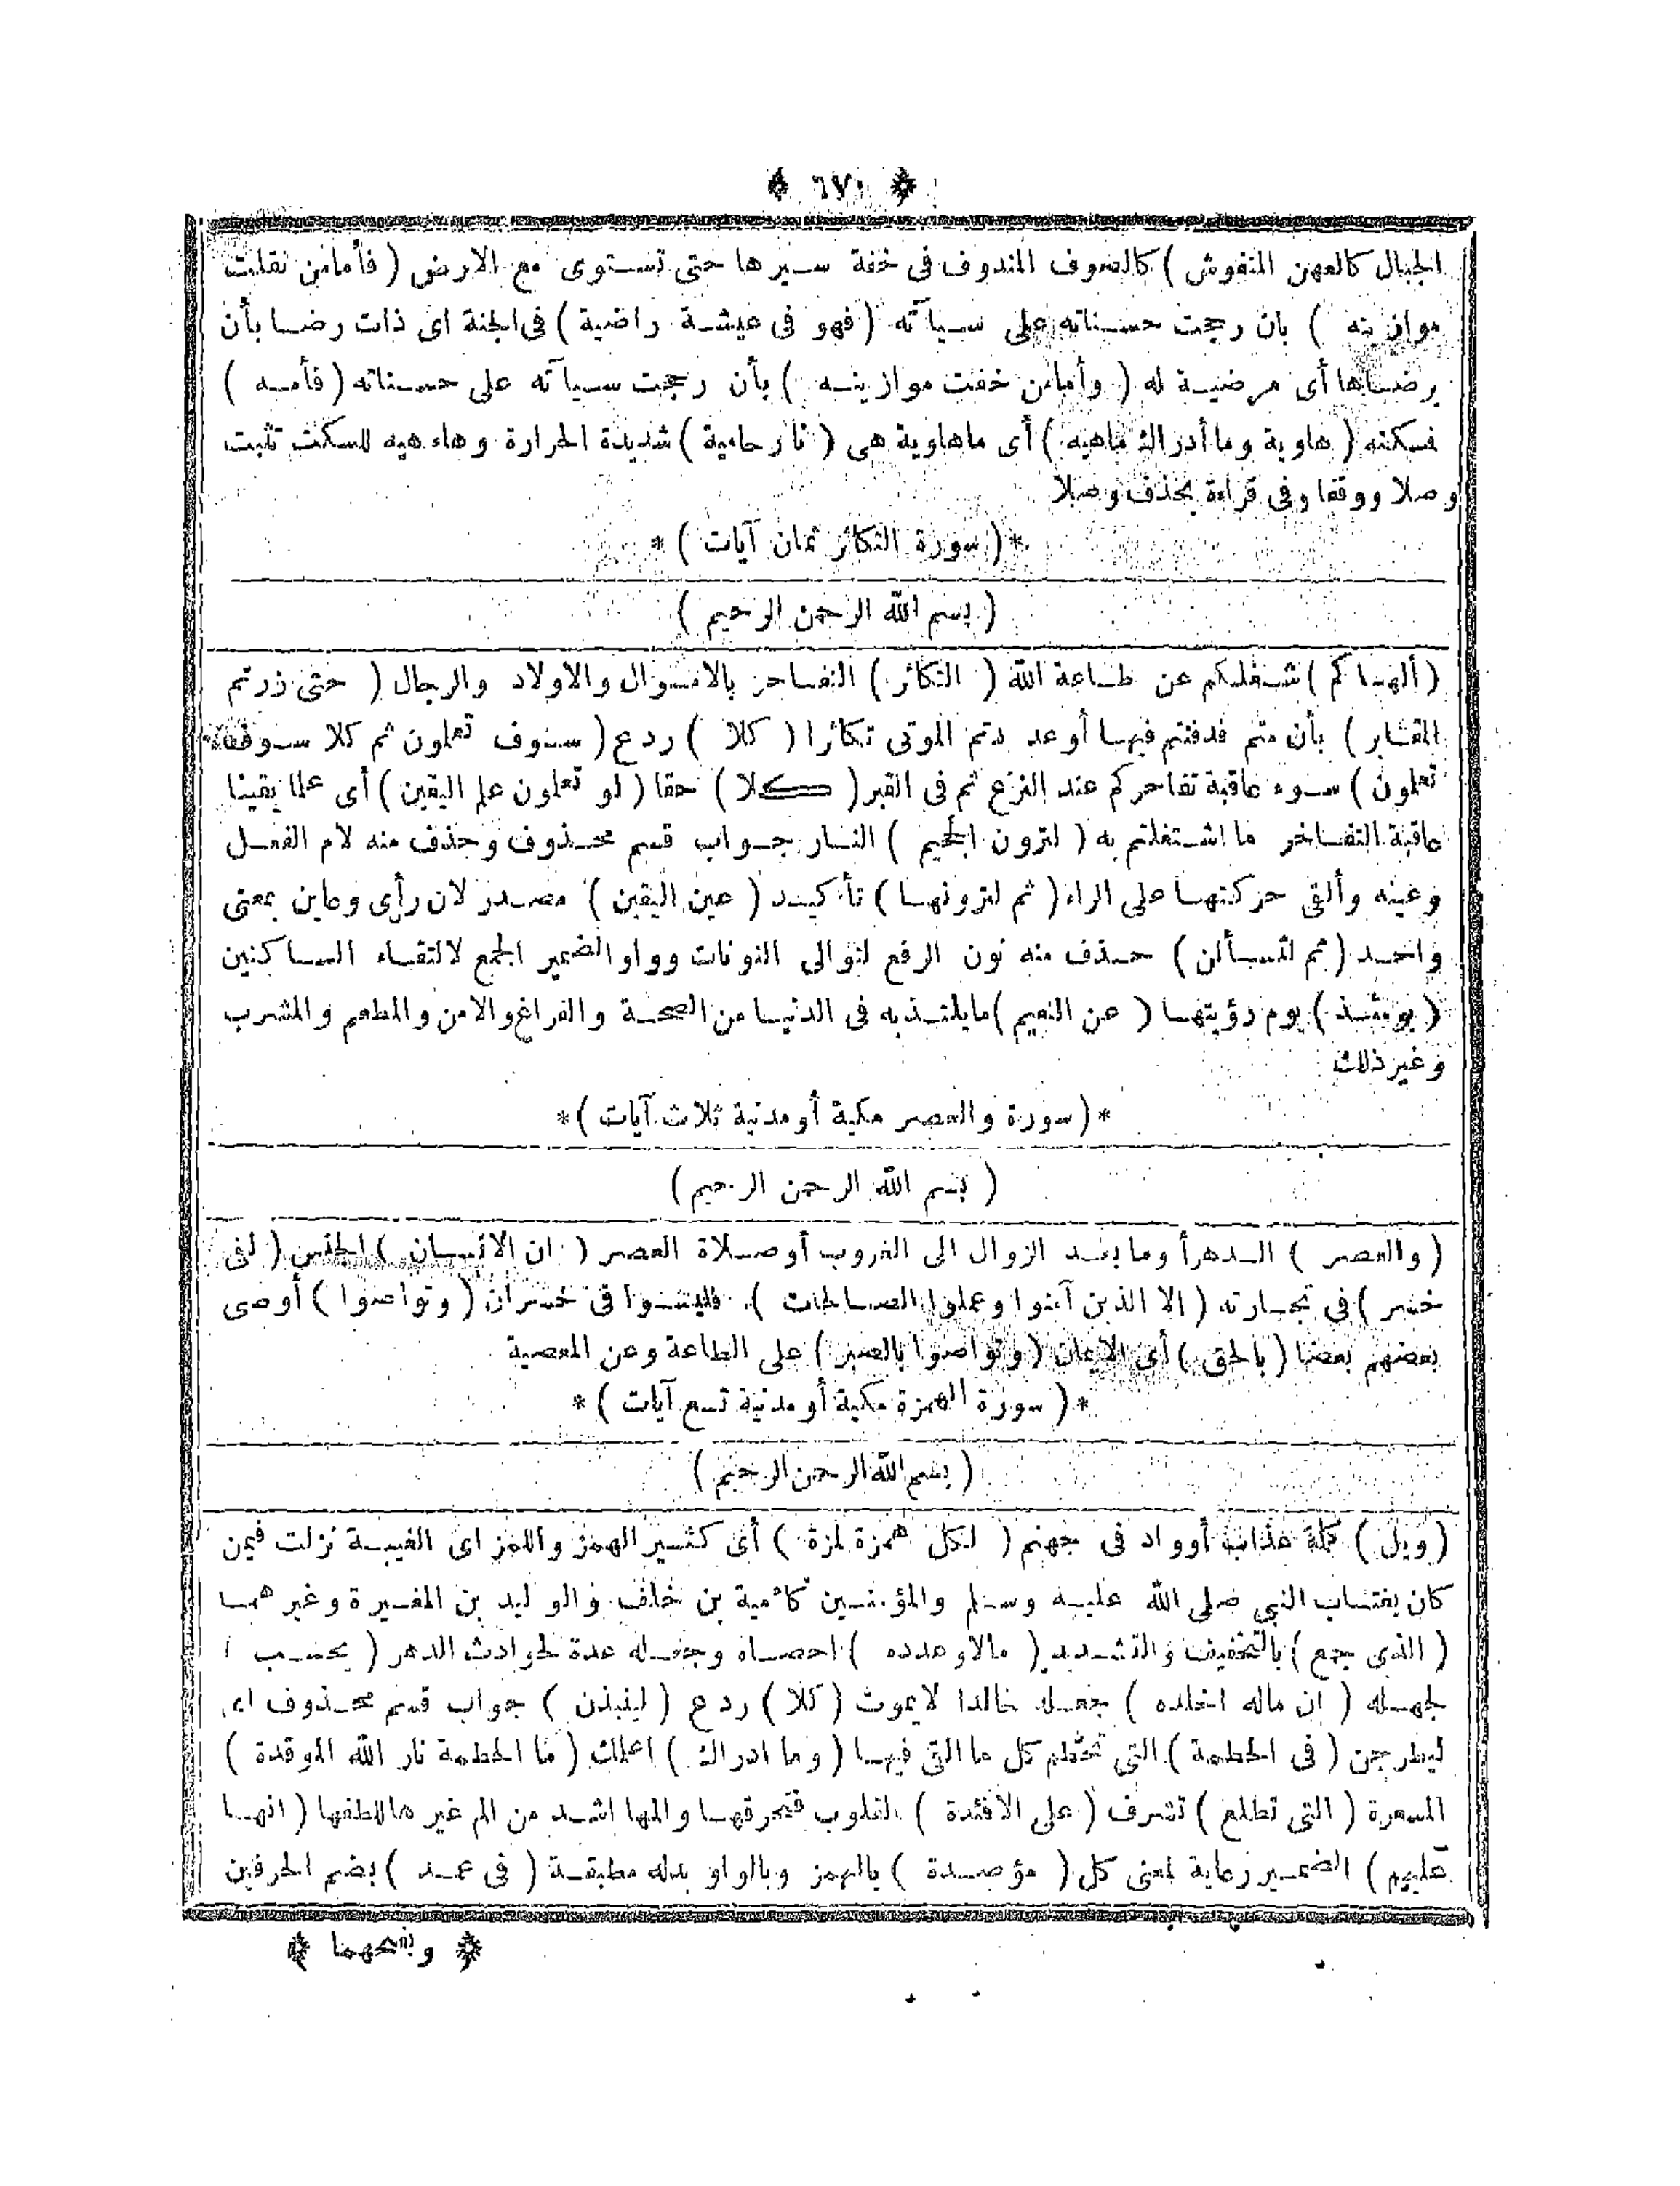 ﴿ ٦٧٠ ﴾
الجبال كالعهن المنفوش ) كالصوف المندوف فى خفة سيرها حتى تستوى مع الارض ( فأمامن ثقلت
موازينه ) بان رجحت حسناته على سيآته ( فهو فى عيشة راضية ) فى الجنة اى ذات رضا بأن
يرضاها أى مرضية له ( وأمامن خفت موازينه ) بأن رجحت سيآته على حسناته ( فأمه )
فسكنه ( هاوية وما أدراك ماهيه ) أى ماهاوية هى ( نارحامية ) شديدة الحرارة وهاء هيه للسكت تثبت
وصلا ووقفا وفى قراءة بحذف وصلا
*( سورة التكاثر ثمان آيات )*
( بسم الله الرحمن الرحيم )
( ألهاكم ) شغلكم عن طاعة الله ( التكاثر ) التفاخر بالاموال والاولاد والرجال ( حتى زرتم
المقابر ) بأن متم فدفنتم فيها أوعددتم الموتى تكاثرا ( كلا ) ردع ( سوف تعلمون ثم كلا سوف
تعلمون ) سوء عاقبة تفاخركم عند النزع ثم فى القبر ( كلا ) حقا ( لو تعلمون علم اليقين ) أى علما يقينا
عاقبة التفاخر ما اشتغلتم به ( لترون الجحيم ) النار جواب قسم محذوف وحذف منه لام الفعل
وعينه وألقى حركتها على الراء ( ثم لترونها ) تأكيد ( عين اليقين ) مصدر لان رأى وعاين بمعنى
واحد ( ثم لتسألن ) حذف منه نون الرفع لتوالى النونات وواو الضمير الجمع لالتقاء الساكنين
( يومئذ ) يوم رؤيتها ( عن النعيم ) مايلتذبه فى الدنيا من الصحة والفراغ والامن والمطعم والمشرب
وغير ذلك
*( سورة والعصر مكية أومدنية ثلاث آيات )*
( بسم الله الرحمن الرحيم )
( والعصر ) الدهر أوما بعد الزوال الى الغروب أوصلاة العصر ( ان الانسان ) الجنس ( لفى
خسر ) فى تجارته ( الا الذين آمنوا وعملوا الصالحات ) فليسوا فى خسران ( وتواصوا ) أوصى
بعضهم بعضا ( بالحق ) أى الايمان ( وتواصوا بالصبر ) على الطاعة وعن المعصية
*( سورة الهمزة مكية أومدنية تسع آيات )*
( بسم الله الرحمن الرحيم )
( ويل ) كلمة عذاب أوواد فى جهنم ( لكل همزة لمزة ) أى كثير الهمز واللمز اى الغيبة نزلت فيمن
كان يغتاب النبى صلى الله عليه وسلم والمؤمنين كأمية بن خلف والوليد بن المغيرة وغيرهما
( الذى جمع ) بالتخفيف والتشديد ( مالاوعدده ) احصاه وجعله عدة لحوادث الدهر ( يحسب )
لجهله ( ان ماله اخلده ) جعله خالدا لايموت ( كلا ) ردع ( لينبذن ) جواب قسم محذوف اى
ليطرحن ( فى الحطمة ) التى تحطم كل ما القى فيها ( وما ادراك ) اعلمك ( ما الحطمة نار الله الموقدة )
المسعرة ( التى تطلع ) تشرف ( على الافئدة ) القلوب فتحرقها والمها اشد من الم غيرها للطفها ( انها
عليهم ) الضمير رعاية لمعنى كل ( مؤصدة ) بالهمز وبالواو بدله مطبقة ( فى عمد ) بضم الحرفين
﴿ وبفتحهما ﴾